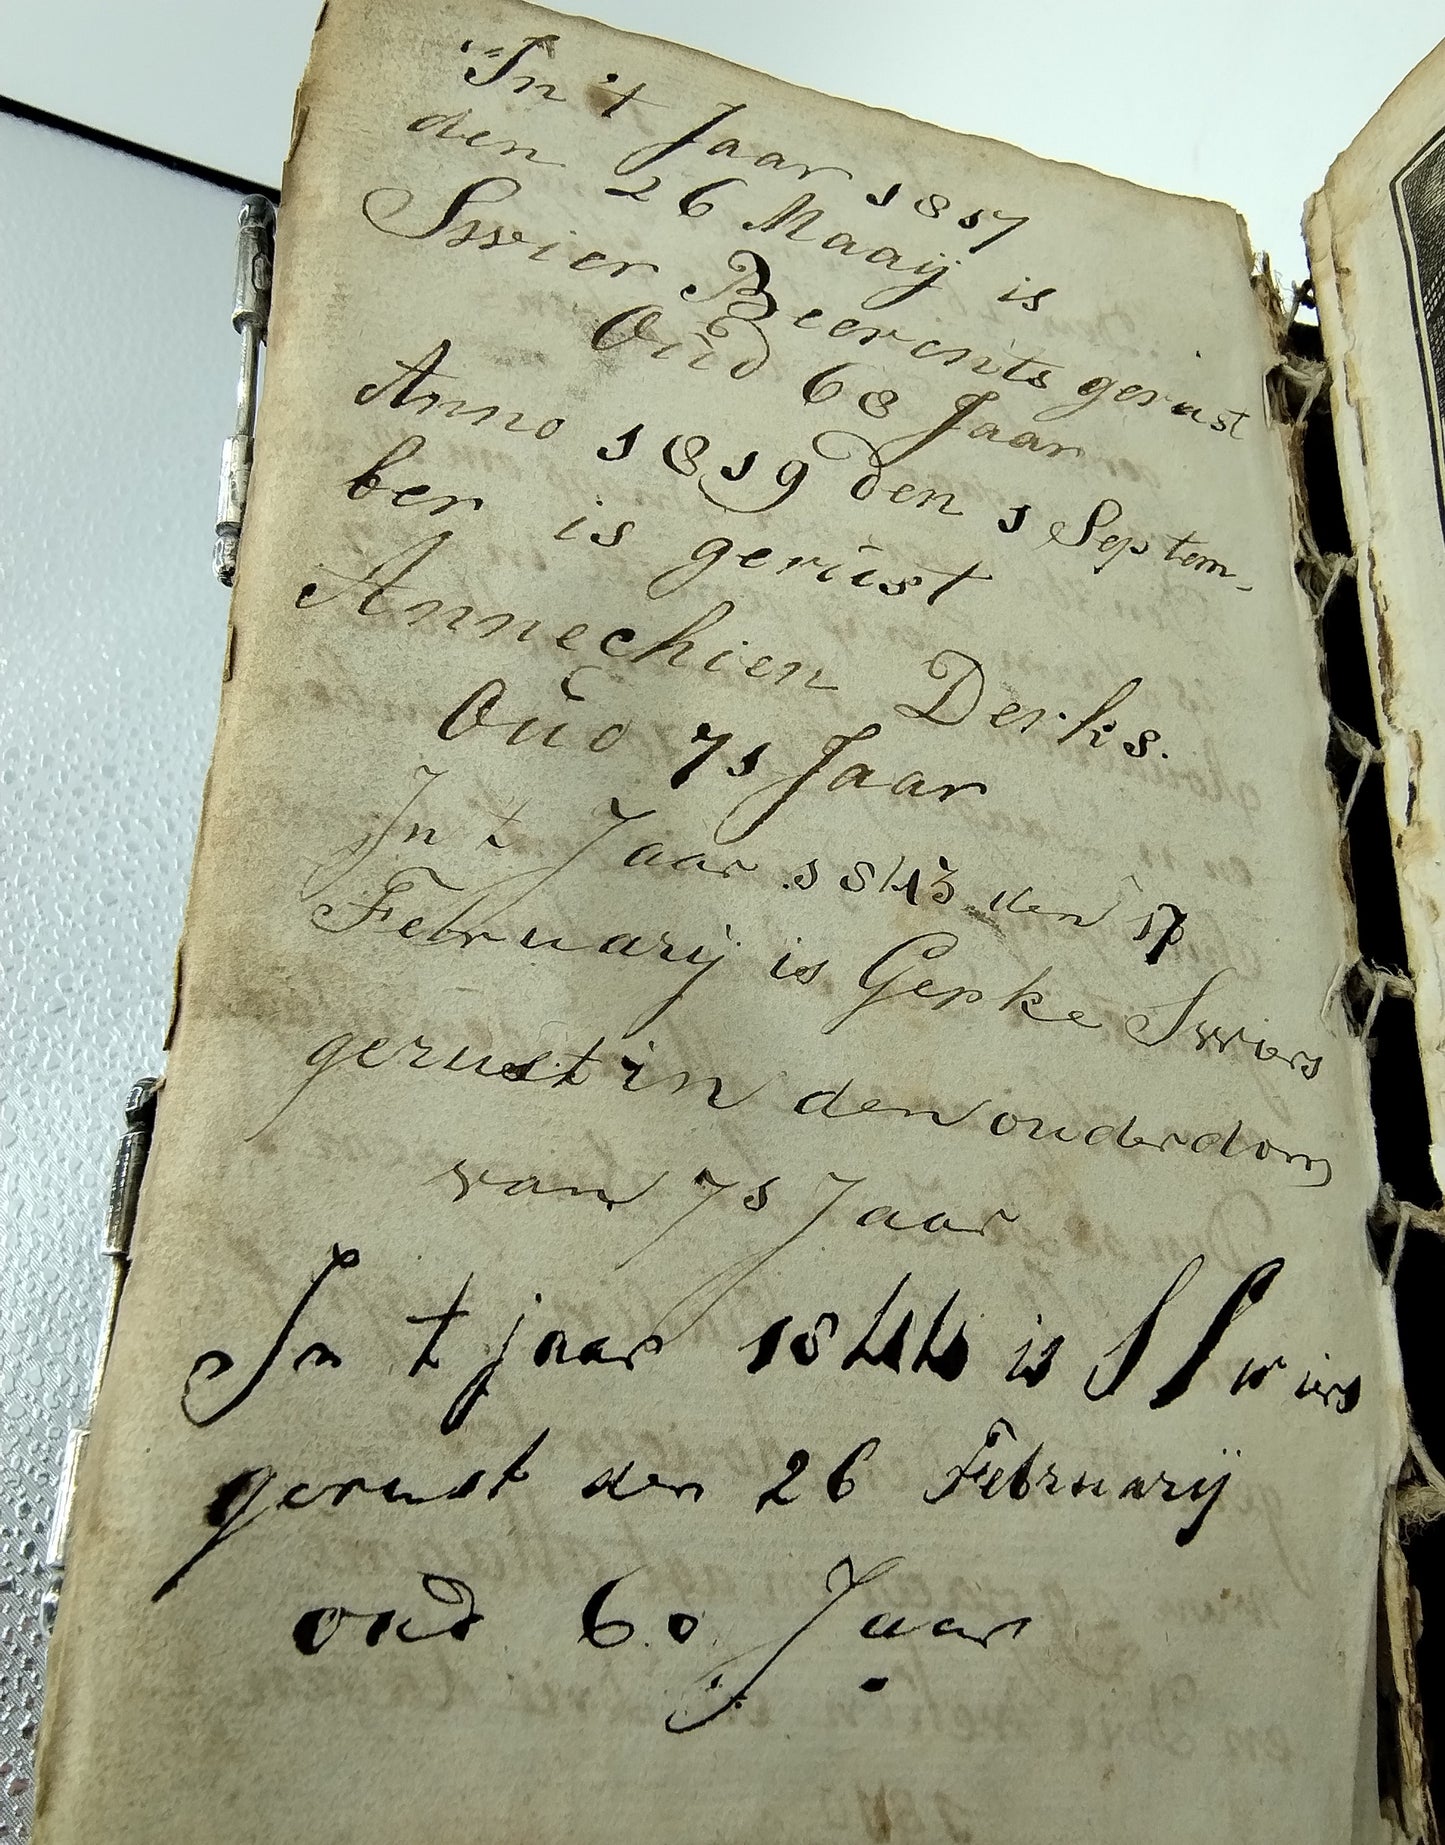 In 't Jaar 1817
den 26 Maaij is
Swier Beerents gerust
Oud 68 Jaar
Anno 1819 den 1 Septem-
ber is gerust
Annechien Derks.
Oud 71 Jaar
In t Jaar 1843 den 17
Februarij is Gepke Swiers
gerust in den ouderdom
van 71 Jaar
In t jaar 1844 is J Swiers
gerust den 26 Februarij
oud 60 Jaar